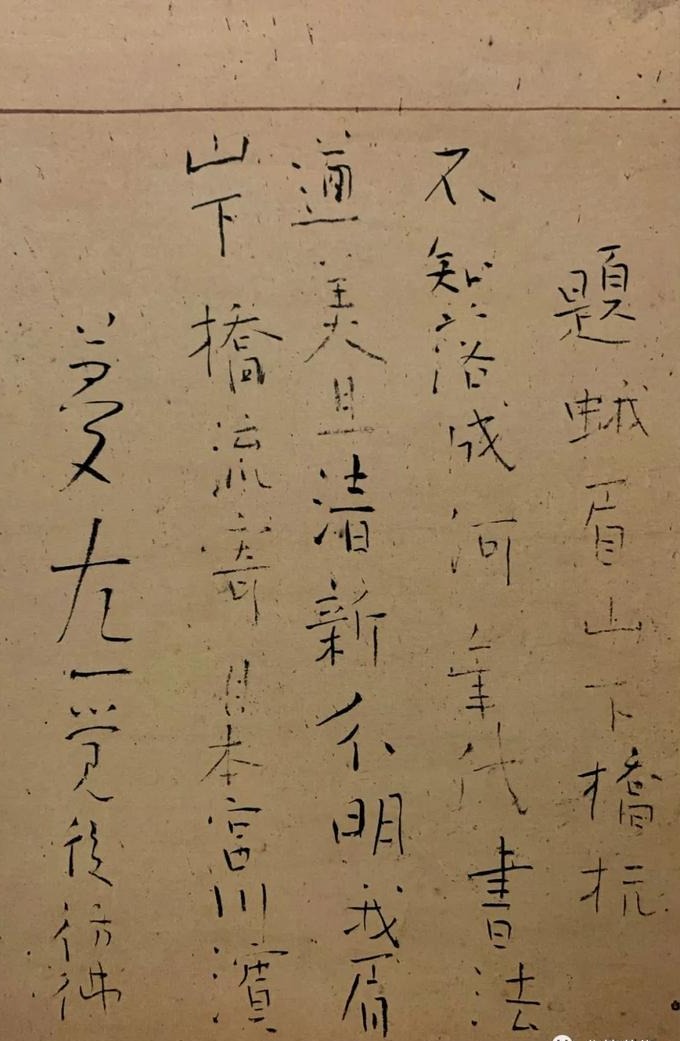 題蛾眉山下橋杭
不知落成河年代書法
遒美且清新分明我眉
山下橋流寄日本宮川濱
夢左一覚後彷彿